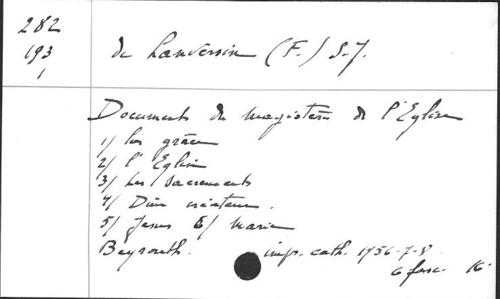 282
193
1
de Lanversin (F.) S.J.
Documents du magistère de l'Eglise
1/ La grâce
2/ l'Eglise
3/ Les Sacrements
4/ Dieu créateur.
5/ Jesus Et Marie
Beyrouth. imp. cath. 1956-7-8.
6 fasc. 16°